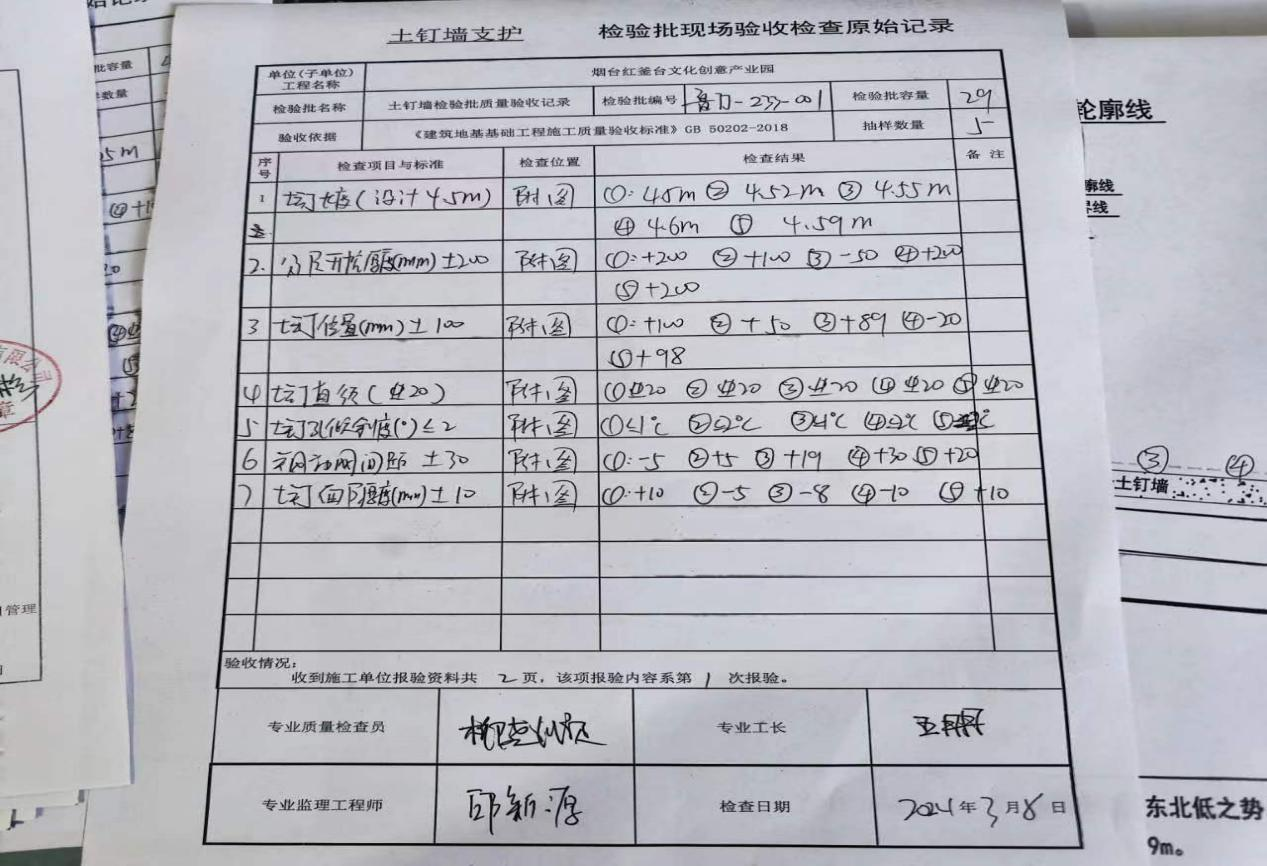 土钉墙支护 检验批现场验收检查原始记录
单位(子单位)工程名称 烟台红釜台文化创意产业园
检验批名称 土钉墙检验批质量验收记录 检验批编号 鲁JJ-233-001 检验批容量 29
验收依据 《建筑地基基础工程施工质量验收标准》GB 50202-2018 抽样数量 5
序号 检查项目与标准 检查位置 检查结果 备注
1 土钉长度(设计4.5m) 附图 ①:4.5m ② 4.52m ③ 4.55m
④ 4.6m ⑤ 4.59m
2. 分层开挖厚度(mm)±200 附图 ①:+200 ②+100 ③-50 ④+200
⑤+200
3 土钉位置(mm)±100 附图 ①:+100 ②+50 ③+89 ④-20
⑤+98
4 土钉直径(⌀20) 附图 ①⌀20 ②⌀20 ③⌀20 ④⌀20 ⑤⌀20
5 土钉孔倾斜度(°)≤2 附图 ①≤1℃
6 钢筋网间距 ±30 附图 ①:-5 ②+5 ③+19 ④+30 ⑤+20
7 土钉面层厚度(mm)±10 附图 ①:+10 ②-5 ③-8 ④-10 ⑤+10
验收情况:
收到施工单位报验资料共 2 页,该项报验内容系第 1 次报验。
专业质量检查员 专业工长
专业监理工程师 邱新源 检查日期 2024年3月8日
批容量
数量
5m
④+1
轮廓线
廓线
界线
③ ④
土钉墙
管理
有限公司
章
东北低之势
9m。